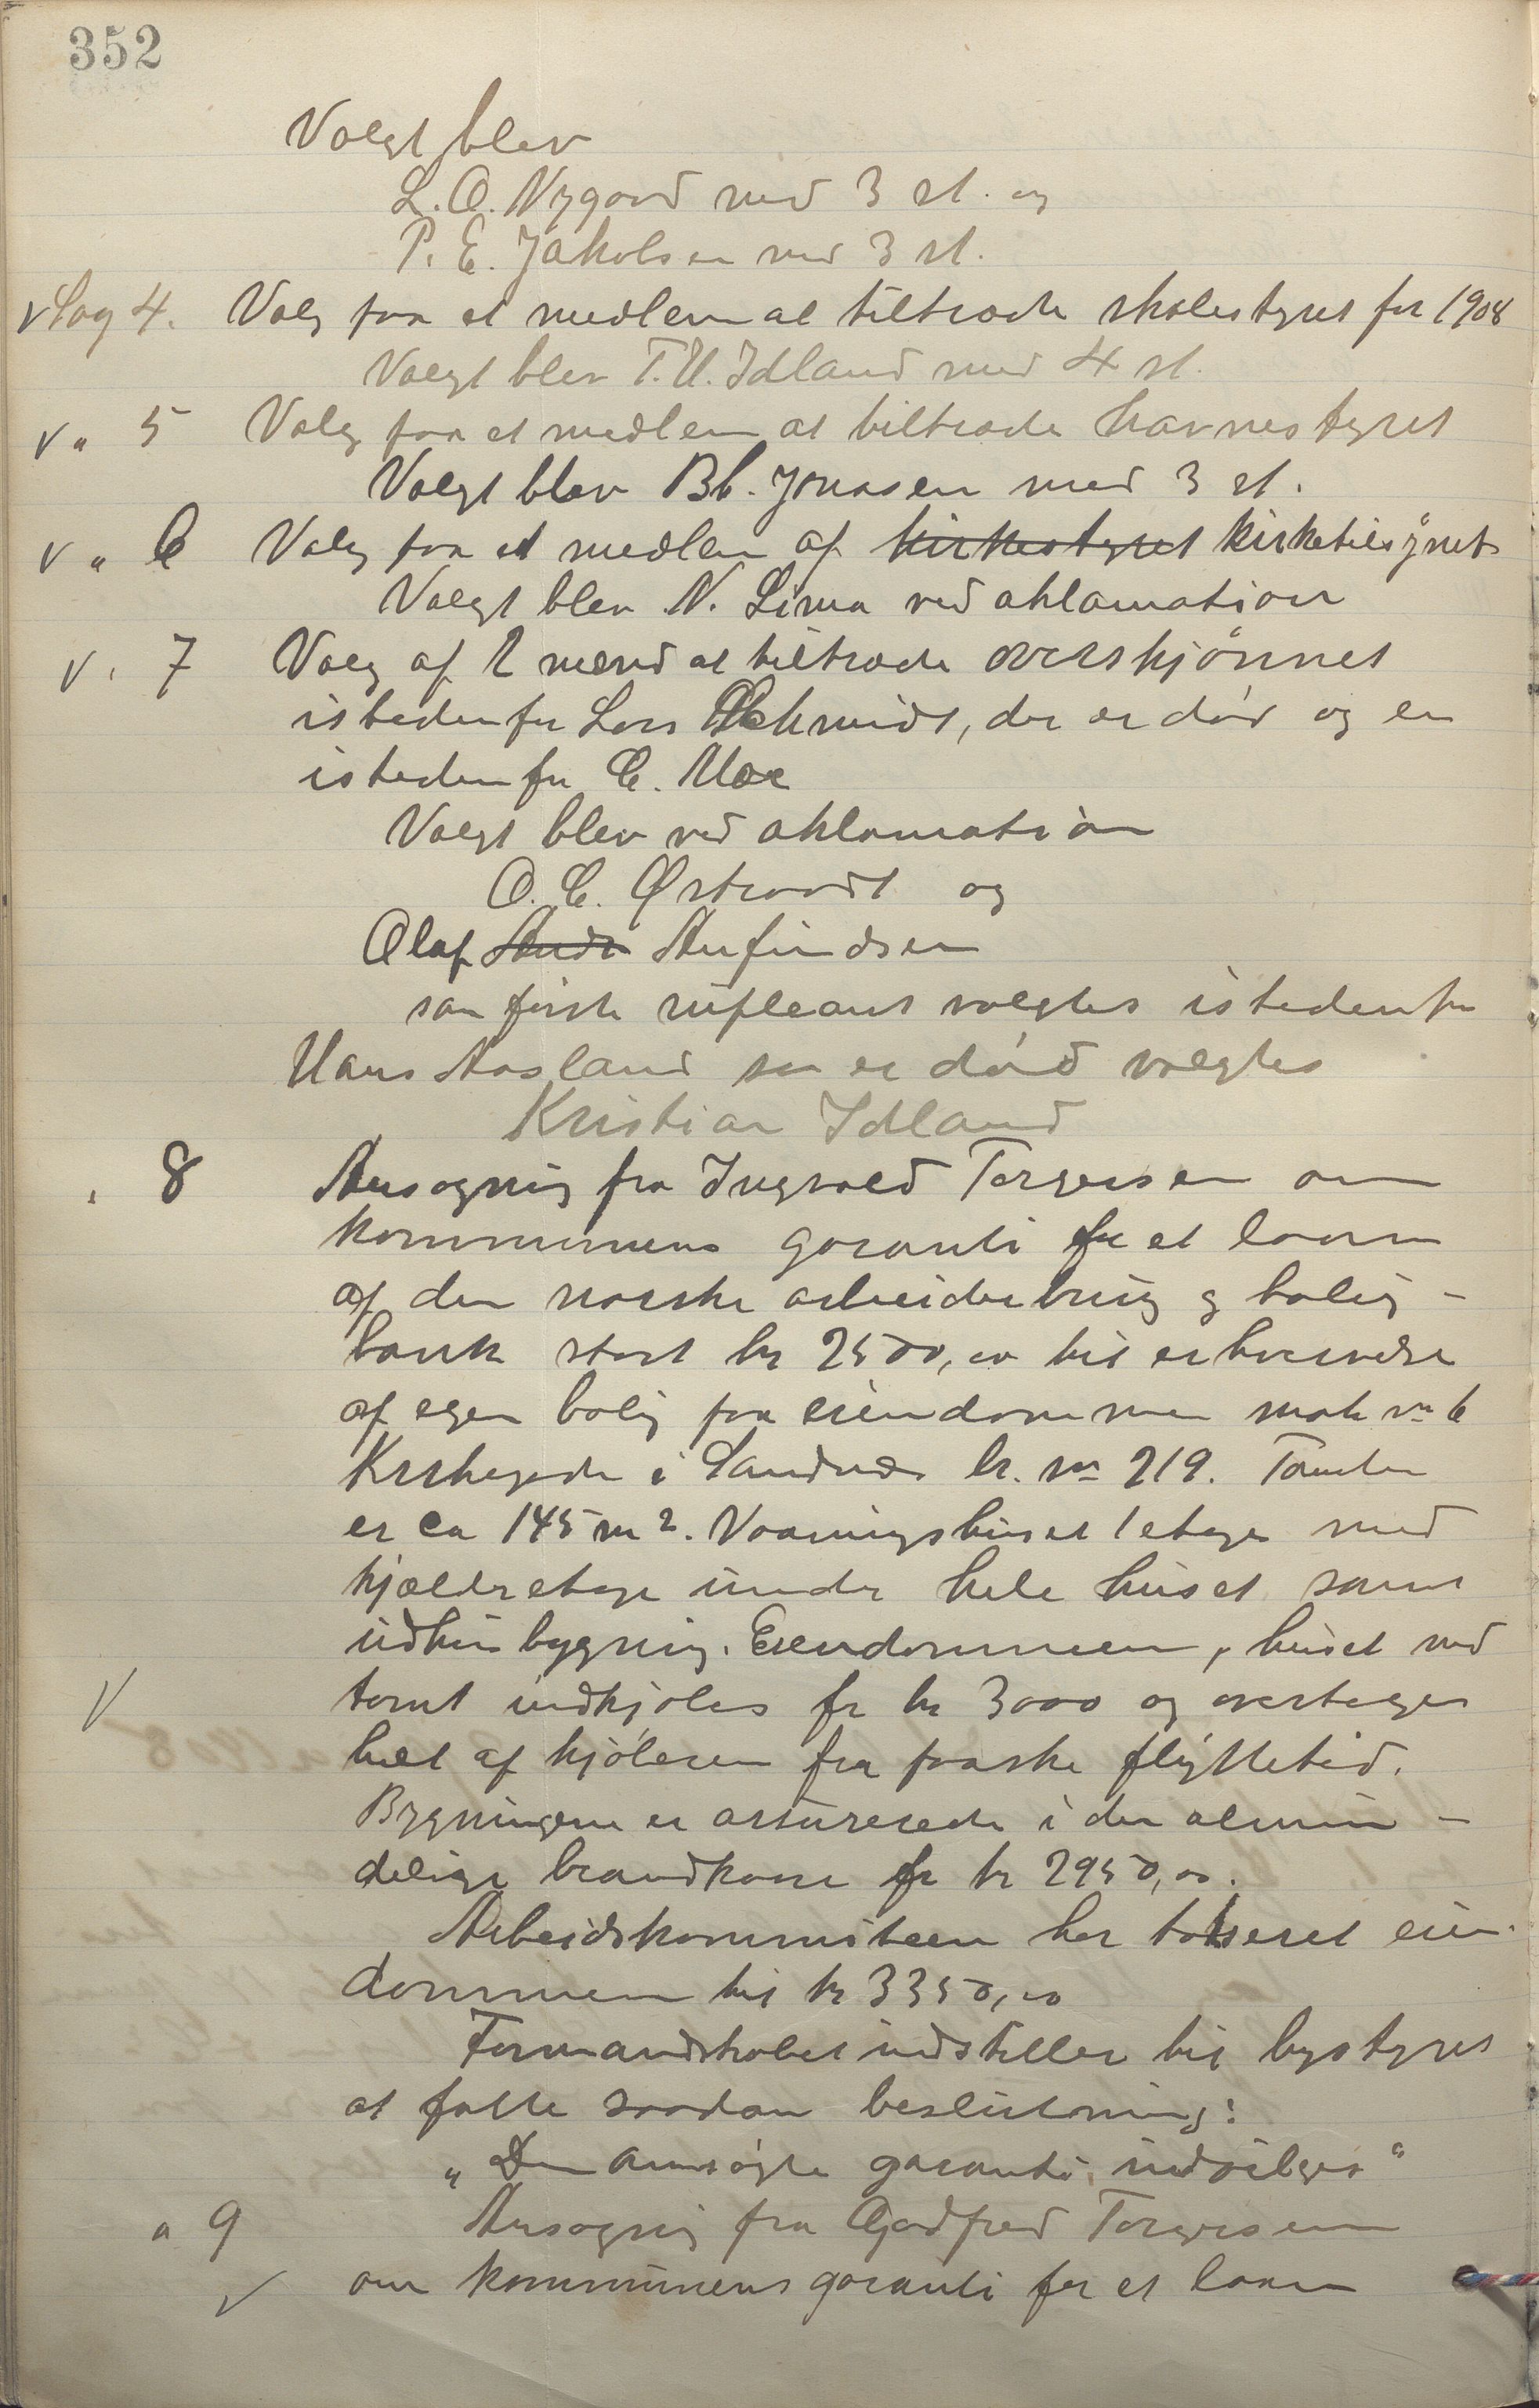 352
Valgt blev
L. O. Nygaard med 3 st. og
P. E. Jakobsen med 3 st.
Sag 4. Valg paa et medlem at tiltræde skolestyret for 1908
Valgt blev T. U. Idland med 4 st.
" 5 Valg paa et medlem at tiltræde havnestyret
Valgt blev B. Jonasen med 3 st.
" 6 Valg paa et medlem af kirkestyret kirketilsynet
Valgt blev N. Lima ved aklamation
" 7 Valg af 2 mænd at tiltræde overskjønnet
istedenfor Lars Schmidt, der er død og en
istedenfor C. Moe
Valgt blev ved aklamation
O. C. Østraadt og
Olaf Andr Anfindsen
som første supleant valgtes istedenfor
Hans Aasland som er død valgtes
Kristian Idland
" 8 Ansøgning fra Ingvald Torgersen om
kommunens garanti for et laan
af den norske arbeiderbrug og bolig-
bank stort kr 2500,00 til erhvervelse
af egen bolig paa eiendommen matr no 6
Kirkegaden i Sandnes br. no 219. Tomten
er ca 145 m2. Vaaningshuset 1 etage med
kjælderetage under hele huset samt
udhusbygning. Eiendommen, huset med
tomt indkjøbes for kr 3000 og overtages
helt af kjøberen fra paaske flyttetid.
Bygningene er assurerede i den almin-
delige brandkasse for kr 2950,00.
Arbeidskommiteen har takseret eien-
dommen til kr 3350,00
Formandskabet indstiller til bystyret
at fatte saadan beslutning:
"Den ansøgte garanti indvilges"
" 9 Ansøgning fra Godfred Torgersen
om kommunens garanti for et laan